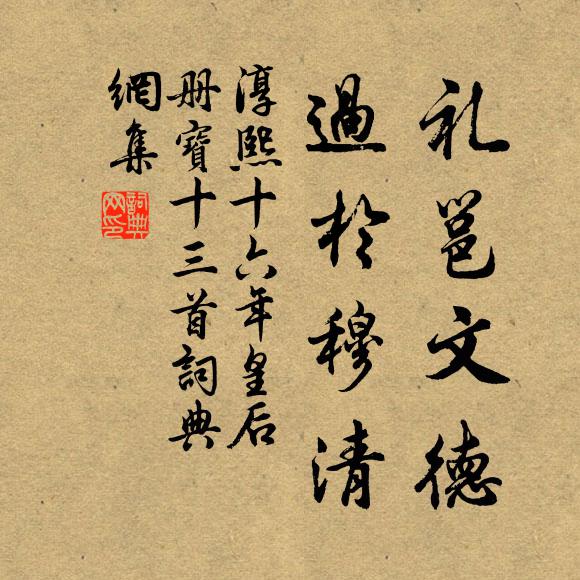 礼邕文德
過於穆清
淳熙十六年皇后
册寶十三首詞典
網集
詞典
网印